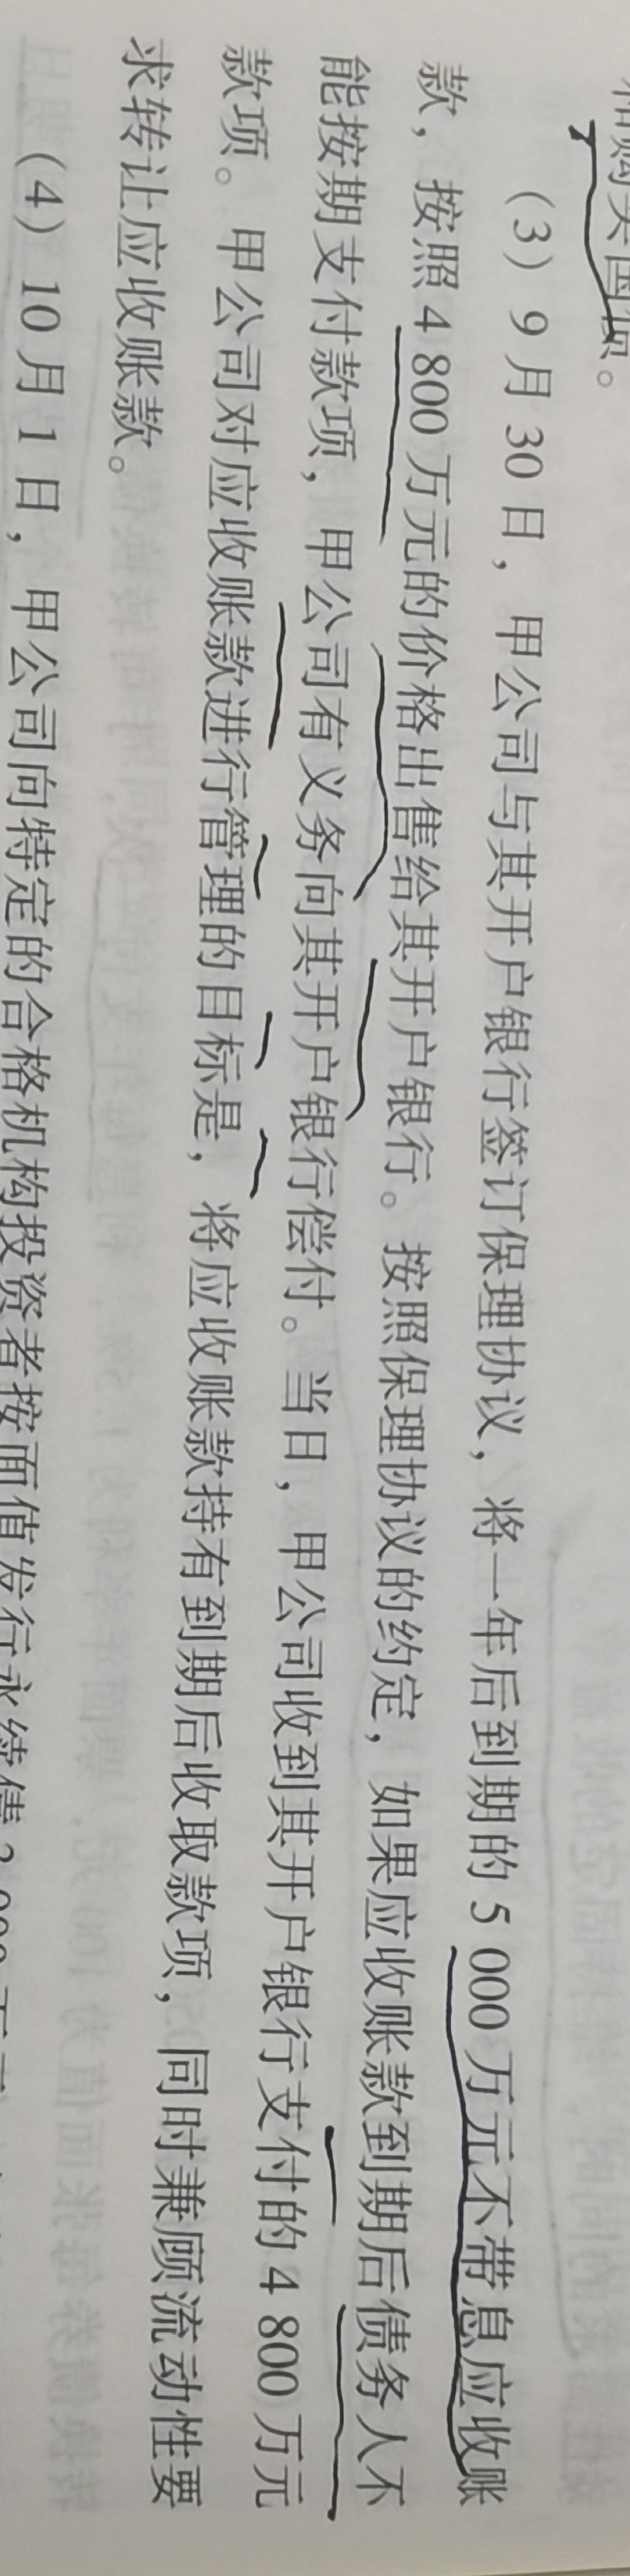 和购美国债。
（3）9月30日，甲公司与其开户银行签订保理协议，将一年后到期的5 000万元不带息应收账
款，按照4 800万元的价格出售给其开户银行。按照保理协议的约定，如果应收账款到期后债务人不
能按期支付款项，甲公司有义务向其开户银行偿付。当日，甲公司收到其开户银行支付的4 800万元
款项。甲公司对应收账款进行管理的目标是，将应收账款持有到期后收取款项，同时兼顾流动性要
求转让应收账款。
（4）10月1日，甲公司向特定的合格机构投资者按面值发行永续债